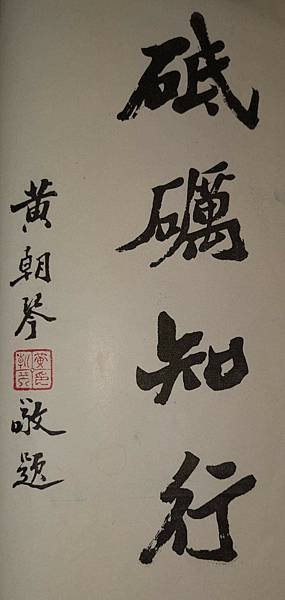 砥礪知行
黃朝琴敬題